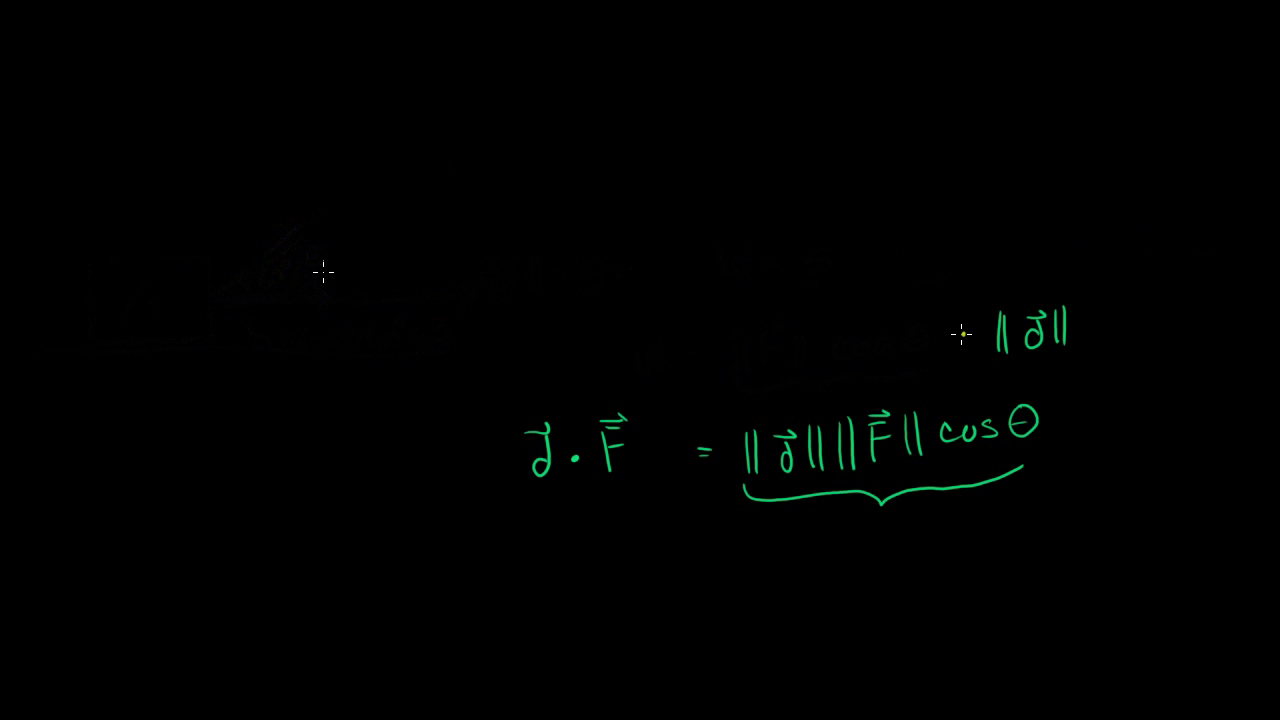 · ‖d⃗‖
d⃗ · F⃗ = ‖d⃗‖‖F⃗‖ cos θ